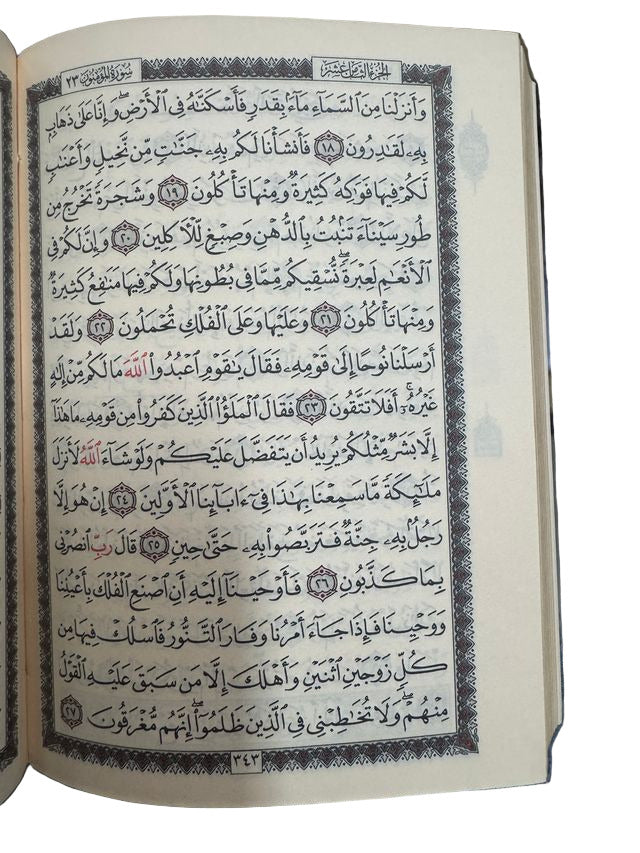 سُورَةُ المُؤْمِنُونَ ٢٣
الجُزْءُ الثَّامِنَ عَشَرَ
وَأَنزَلْنَا مِنَ ٱلسَّمَآءِ مَآءَۢ بِقَدَرٍ فَأَسْكَنَّٰهُ فِي ٱلْأَرْضِۖ وَإِنَّا عَلَىٰ ذَهَابِۭ
بِهِۦ لَقَٰدِرُونَ ١٨ فَأَنشَأْنَا لَكُم بِهِۦ جَنَّٰتٍ مِّن نَّخِيلٍ وَأَعْنَٰبٍ
لَّكُمْ فِيهَا فَوَٰكِهُ كَثِيرَةٌ وَمِنْهَا تَأْكُلُونَ ١٩ وَشَجَرَةً تَخْرُجُ مِن
طُورِ سَيْنَآءَ تَنۢبُتُ بِٱلدُّهْنِ وَصِبْغٍ لِّلْأٓكِلِينَ ٢٠ وَإِنَّ لَكُمْ فِي
ٱلْأَنْعَٰمِ لَعِبْرَةًۖ نُّسْقِيكُم مِّمَّا فِي بُطُونِهَا وَلَكُمْ فِيهَا مَنَٰفِعُ كَثِيرَةٌ
وَمِنْهَا تَأْكُلُونَ ٢١ وَعَلَيْهَا وَعَلَى ٱلْفُلْكِ تُحْمَلُونَ ٢٢ وَلَقَدْ
أَرْسَلْنَا نُوحًا إِلَىٰ قَوْمِهِۦ فَقَالَ يَٰقَوْمِ ٱعْبُدُوا۟ ٱللَّهَ مَا لَكُم مِّنْ إِلَٰهٍ
غَيْرُهُۥٓۚ أَفَلَا تَتَّقُونَ ٢٣ فَقَالَ ٱلْمَلَؤُا۟ ٱلَّذِينَ كَفَرُوا۟ مِن قَوْمِهِۦ مَا هَٰذَآ
إِلَّا بَشَرٌ مِّثْلُكُمْ يُرِيدُ أَن يَتَفَضَّلَ عَلَيْكُمْ وَلَوْ شَآءَ ٱللَّهُ لَأَنزَلَ
مَلَٰٓئِكَةً مَّا سَمِعْنَا بِهَٰذَا فِيٓ ءَابَآئِنَا ٱلْأَوَّلِينَ ٢٤ إِنْ هُوَ إِلَّا
رَجُلُۢ بِهِۦ جِنَّةٌ فَتَرَبَّصُوا۟ بِهِۦ حَتَّىٰ حِينٍ ٢٥ قَالَ رَبِّ ٱنصُرْنِي
بِمَا كَذَّبُونِ ٢٦ فَأَوْحَيْنَآ إِلَيْهِ أَنِ ٱصْنَعِ ٱلْفُلْكَ بِأَعْيُنِنَا
وَوَحْيِنَا فَإِذَا جَآءَ أَمْرُنَا وَفَارَ ٱلتَّنُّورُ فَٱسْلُكْ فِيهَا مِن
كُلٍّ زَوْجَيْنِ ٱثْنَيْنِ وَأَهْلَكَ إِلَّا مَن سَبَقَ عَلَيْهِ ٱلْقَوْلُ
مِنْهُمْۖ وَلَا تُخَٰطِبْنِي فِي ٱلَّذِينَ ظَلَمُوٓا۟ۖ إِنَّهُم مُّغْرَقُونَ ٢٧
٣٤٣